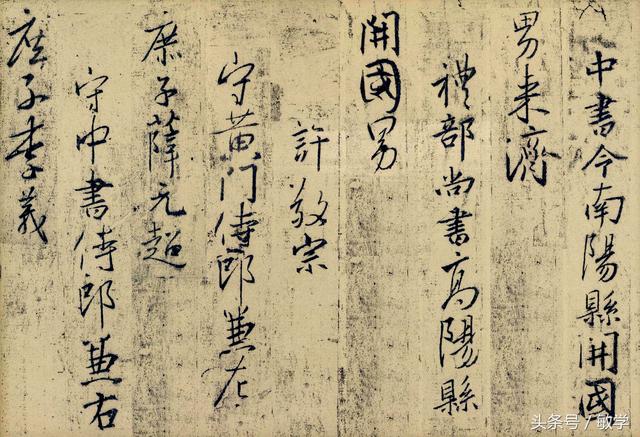 中書令南陽縣開國
男来濟
禮部尚書高陽縣
開國男
許敬宗
守黄门侍郎兼左
庶子薛元超
守中書侍郎兼右
庶子李義
头条号 / 敏学